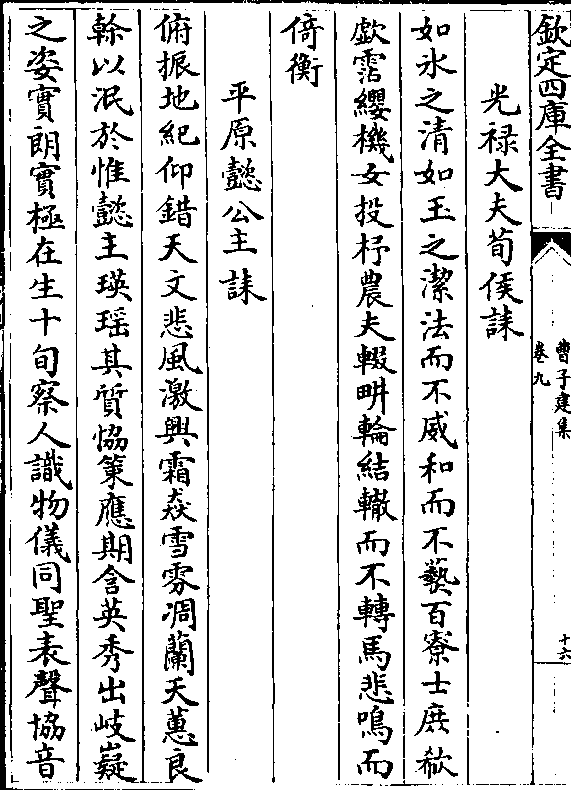 欽定四庫全書
曹子建集
卷九
十六
光禄大夫荀侯誄
如氷之清如玉之潔法而不威和而不䙝百寮士庶欷
歔霑纓機女投杼農夫輟畊輪結轍而不轉馬悲鳴而
倚衡
平原懿公主誄
俯振地紀仰錯天文悲風激興霜焱雪雰凋蘭天蕙良
榦以泯於惟懿主瑛瑶其質恊策應期含英秀出岐嶷
之姿實朗實極在生十旬察人識物儀同聖表聲協音